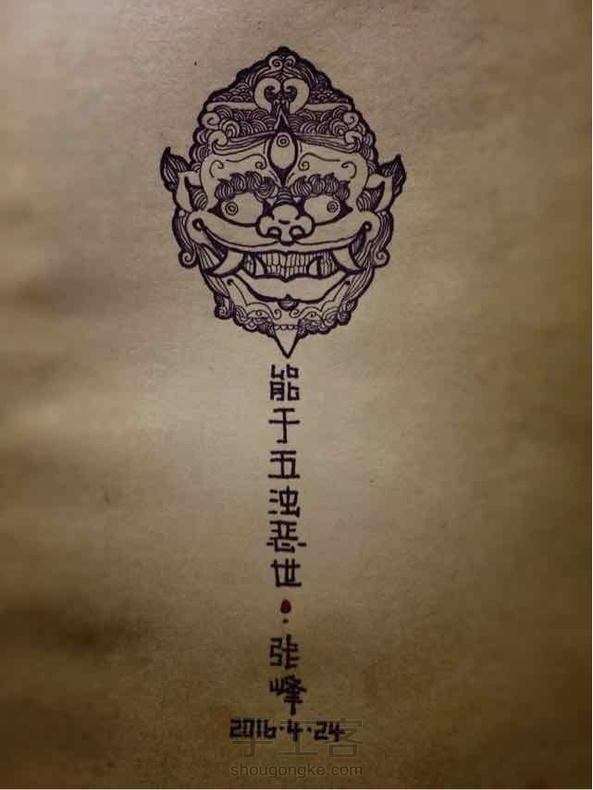 能于五浊恶世
张峰
2016·4·24
手工客
shougongke.com